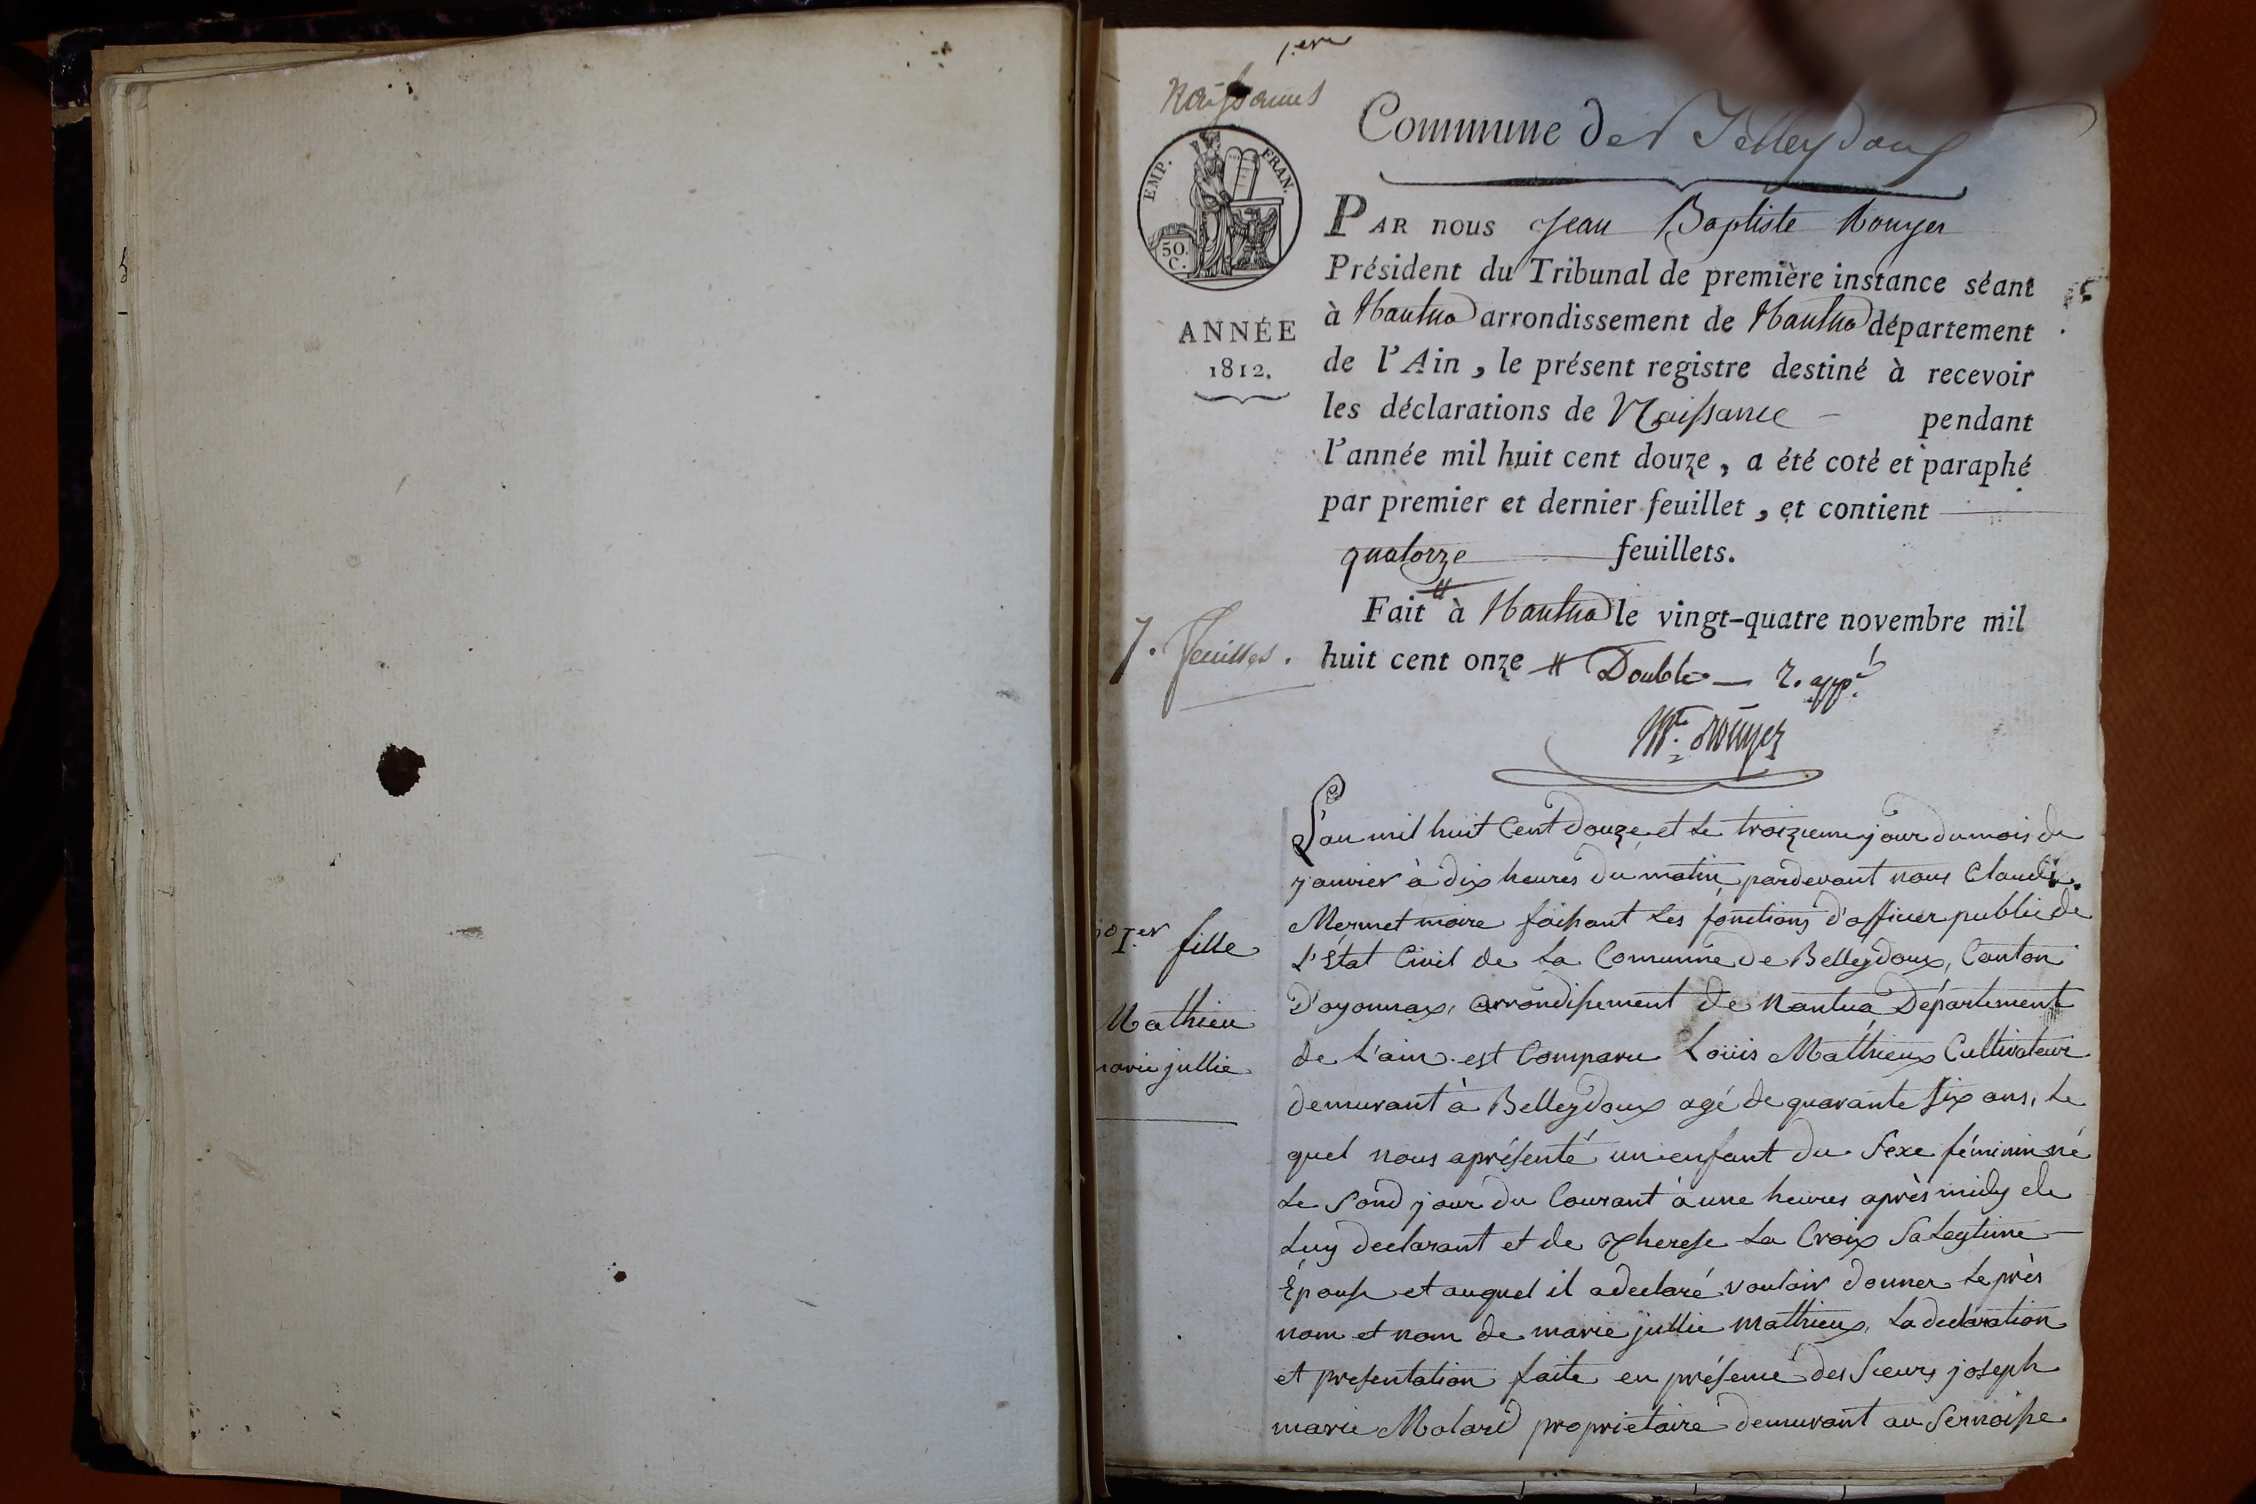 1.ere
Naissances
Commune de Belleydoux
EMP. FRAN.
50.
C.
ANNÉE
1812.
PAR nous Jean Baptiste Rouyer
Président du Tribunal de première instance séant
à Nantua arrondissement de Nantua département
de l'Ain, le présent registre destiné à recevoir
les déclarations de Naissance pendant
l'année mil huit cent douze, a été coté et paraphé
par premier et dernier feuillet, et contient
quatorze feuillets.
Fait à Nantua le vingt-quatre novembre mil
huit cent onze # Double — 2. app.
7. feuilles.
Rouyer
L'an mil huit Cent douze, et le troizieme jour du mois de
janvier à dix heures du matin, pardevant nous Claude
Mermet maire faisant les fonctions d'officier public de
L'état Civil de La Commune de Belleydoux, Canton
D'oyonnax, arrondissement de Nantua, Département
de L'ain. est Comparu Loüis Mathieux Cultivateur
demurant à Belleydoux agé de quarante six ans, Le
quel nous aprésenté un enfant du Sexe féminin né
Le Sond jour du Courant à une heures après midy de
Luy declarant et de Therese La Croix Sa Legtime
Épouse et auquel il a declaré vouloir donner Le près
nom et nom de marie jullie mathieux, La declaration
et presentation faite en présence des Sieurs joseph
marie Molard proprietaire demurant au Sernoise
1.er fille
Mathieu
marie jullie